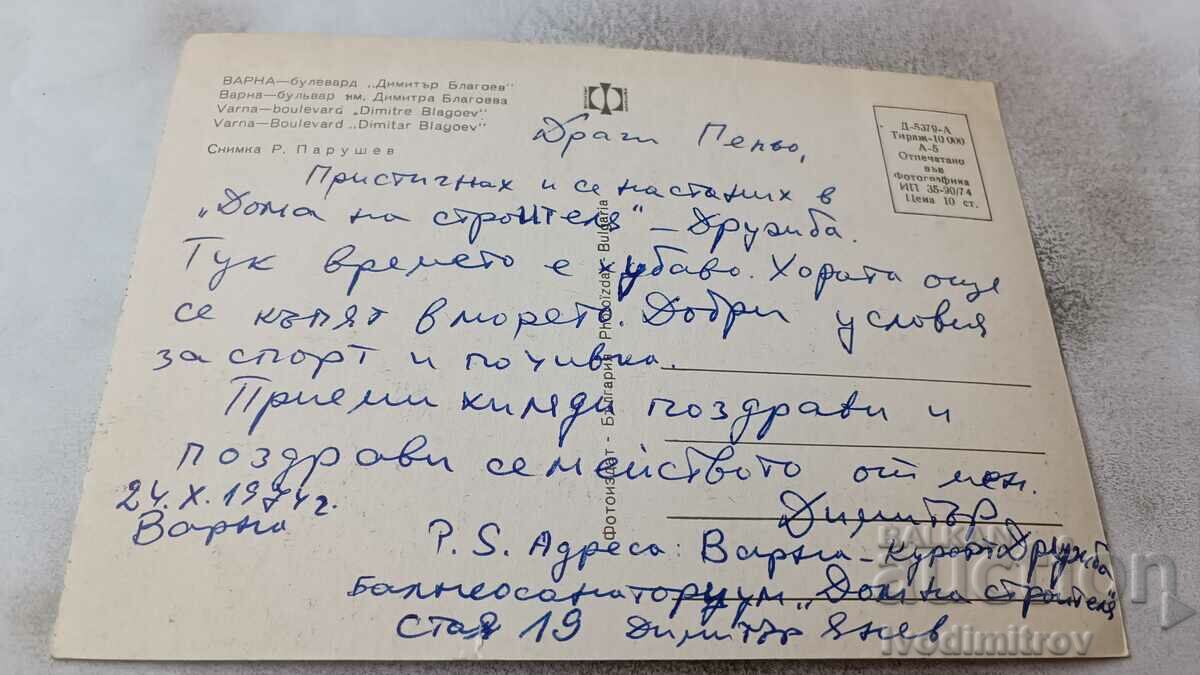 ВАРНА—булевард „Димитър Благоев"
Варна—бульвар им. Димитра Благоева
Varna—boulevard „Dimitre Blagoev"
Varna—Boulevard „Dimitar Blagoev"
Снимка Р. Парушев
Д-5379-А
Тираж-10 000
А-5
Отпечатано
във
Фотографика
ИП 35-90/74
Цена 10 ст.
Драги Пепьо,
Пристигнах и се настаних в
„Дома на строителя" – Дружба.
Тук времето е хубаво. Хората още
се къпят в морето. Добри условия
за спорт и почивка.
Приеми хиляди поздрави и
поздрави семейството от мен.
24.X.1974г.
Варна
Димитър
P.S. Адреса: Варна – курорта Дружба
Балнеосанаториум „Дом на строителя"
стая 19 Димитър Янев
Фотоиздат - България Photoizdat - Bulgaria
BALKAN
auction
ivodimitrov